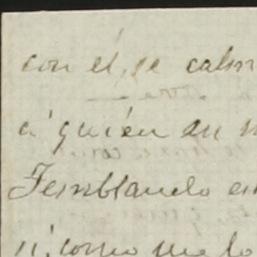 con él, se calm
á quién su
Temblando en
ni como me lo